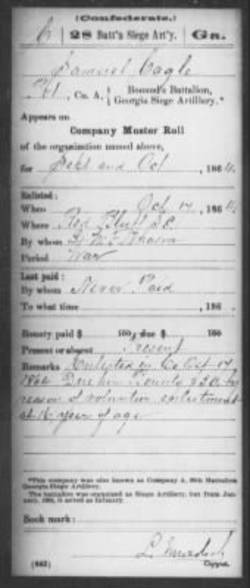 (Confederate.)
C | 28 Batt'n Siege Art'y. | Ga.
Samuel Cagle
Pvt, Co. A, { Bonaud's Battalion, Georgia Siege Artillery.*
Appears on
Company Muster Roll
of the organization named above,
for Sept and Oct, 1864.
Enlisted:
When Oct 17, 1864
Where Red Bluff S.C.
By whom
Period War
Last paid:
By whom Never Paid
To what time, 186 .
Bounty paid $ 100; due $ 100
Present or absent Present
Remarks: Enlisted in Co Oct 17
1864 Due him Bounty $50 by
reason of volunteer enlistment
at 16 year of age
*This company was also known as Company A, 28th Battalion
Georgia Siege Artillery.
The battalion was organized as Siege Artillery, but from
January, 1864, it served as infantry.
Book mark:
(642)
Copyist.